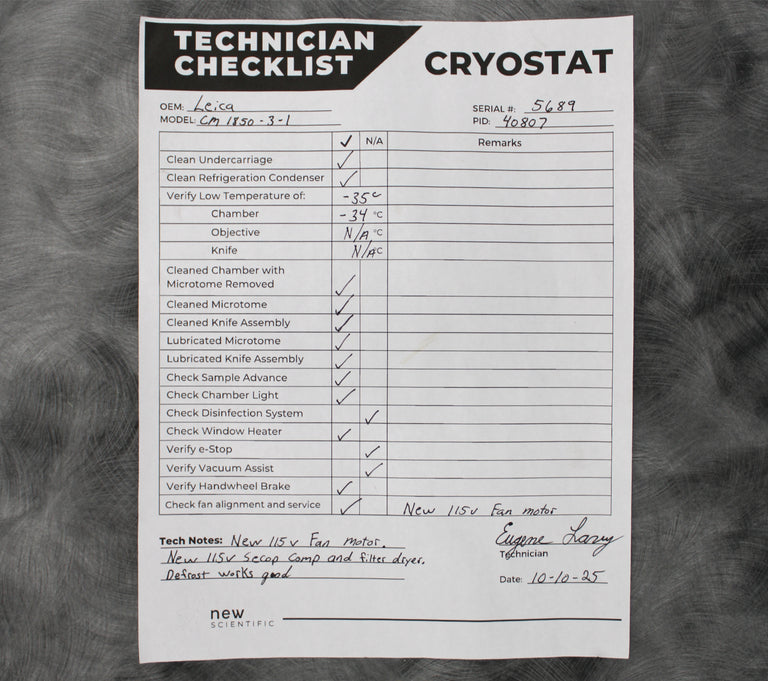 TECHNICIAN
CHECKLIST
CRYOSTAT
OEM: Leica
SERIAL #: 5689
MODEL: CM 1850-3-1
PID: 40807
✓ N/A Remarks
Clean Undercarriage ✓
Clean Refrigeration Condenser ✓
Verify Low Temperature of: -35c
Chamber -34 °C
Objective N/A °C
Knife N/A °C
Cleaned Chamber with
Microtome Removed ✓
Cleaned Microtome ✓
Cleaned Knife Assembly ✓
Lubricated Microtome ✓
Lubricated Knife Assembly ✓
Check Sample Advance ✓
Check Chamber Light ✓
Check Disinfection System ✓
Check Window Heater ✓
Verify e-Stop ✓
Verify Vacuum Assist ✓
Verify Handwheel Brake ✓
Check fan alignment and service ✓ New 115v Fan motor
Tech Notes: New 115v Fan motor.
New 115v Secop Comp and filter dryer.
Defrost works good
Eugene
Technician
Date: 10-10-25
new
SCIENTIFIC